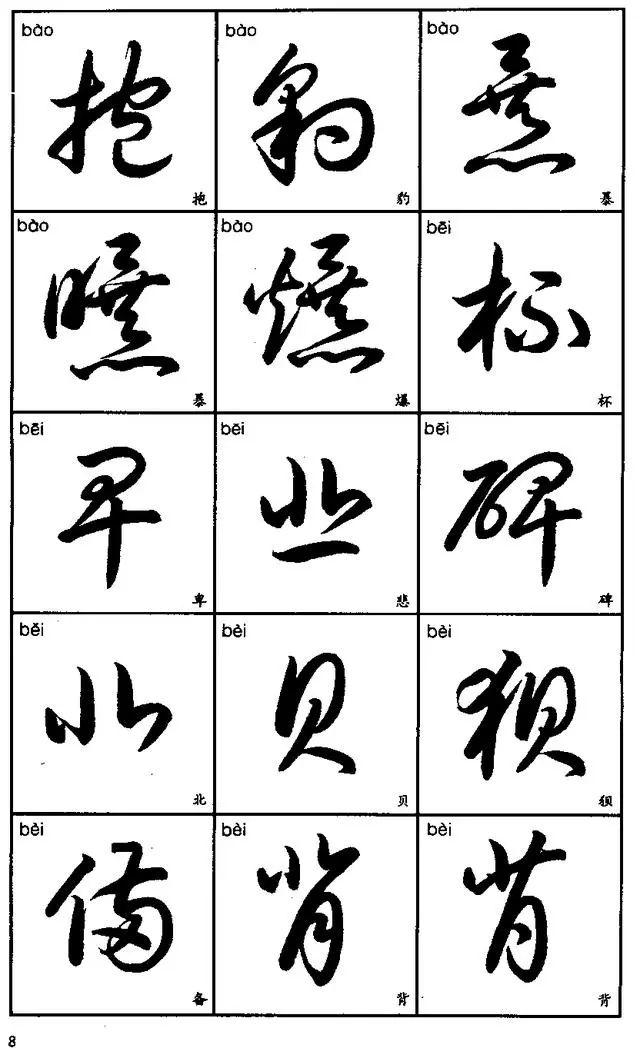 bào bào bào
抱 豹 暴
抱 豹 暴
bào bào bēi
曝 爆 杯
暴 爆 杯
bēi bēi bēi
卑 悲 碑
卑 悲 碑
běi bèi bèi
北 贝 狈
北 贝 狈
bèi bèi bèi
備 背 背
备 背 背
8